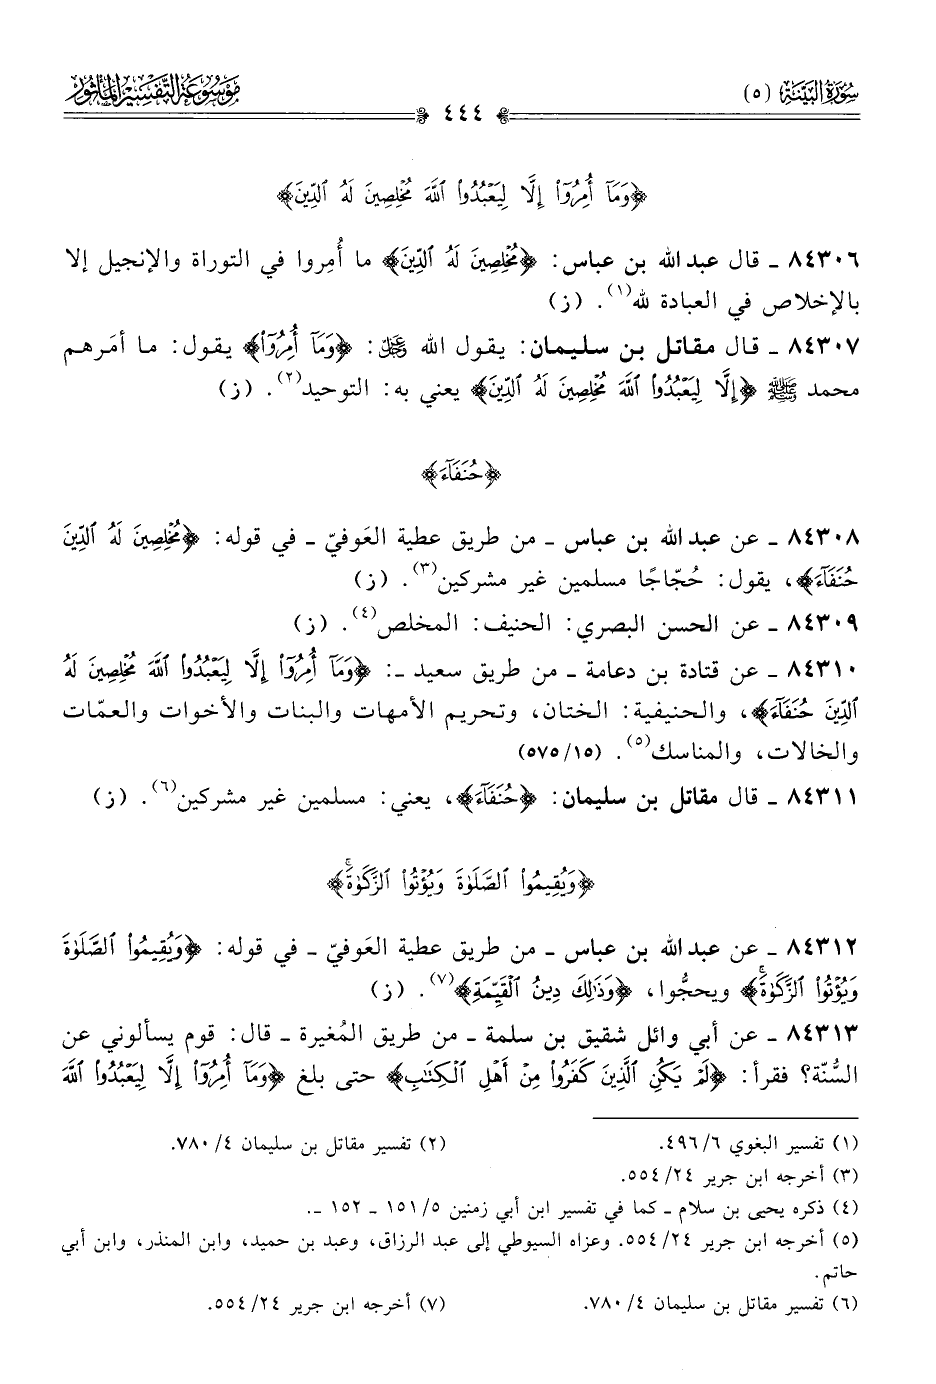 سُورَةُ البَيِّنَة (٥)
٤٤٤
مَوْسُوعَةُ التَّفْسِيرِ المَأْثُور
﴿وَمَآ أُمِرُوٓا۟ إِلَّا لِيَعْبُدُوا۟ ٱللَّهَ مُخْلِصِينَ لَهُ ٱلدِّينَ﴾
٨٤٣٠٦ ـ قال عبد الله بن عباس: ﴿مُخْلِصِينَ لَهُ ٱلدِّينَ﴾ ما أُمِروا في التوراة والإنجيل إلا
بالإخلاص في العبادة لله(١). (ز)
٨٤٣٠٧ ـ قال مقاتل بن سليمان: يقول الله ﷿: ﴿وَمَآ أُمِرُوٓا۟﴾ يقول: ما أمَرهم
محمد ﷺ ﴿إِلَّا لِيَعْبُدُوا۟ ٱللَّهَ مُخْلِصِينَ لَهُ ٱلدِّينَ﴾ يعني به: التوحيد(٢). (ز)
﴿حُنَفَآءَ﴾
٨٤٣٠٨ ـ عن عبد الله بن عباس ـ من طريق عطية العَوفيّ ـ في قوله: ﴿مُخْلِصِينَ لَهُ ٱلدِّينَ
حُنَفَآءَ﴾، يقول: حُجّاجًا مسلمين غير مشركين(٣). (ز)
٨٤٣٠٩ ـ عن الحسن البصري: الحنيف: المخلص(٤). (ز)
٨٤٣١٠ ـ عن قتادة بن دعامة ـ من طريق سعيد ـ: ﴿وَمَآ أُمِرُوٓا۟ إِلَّا لِيَعْبُدُوا۟ ٱللَّهَ مُخْلِصِينَ لَهُ
ٱلدِّينَ حُنَفَآءَ﴾، والحنيفية: الختان، وتحريم الأمهات والبنات والأخوات والعمّات
والخالات، والمناسك(٥). (٥٧٥/١٥)
٨٤٣١١ ـ قال مقاتل بن سليمان: ﴿حُنَفَآءَ﴾، يعني: مسلمين غير مشركين(٦). (ز)
﴿وَيُقِيمُوا۟ ٱلصَّلَوٰةَ وَيُؤْتُوا۟ ٱلزَّكَوٰةَ ۚ﴾
٨٤٣١٢ ـ عن عبد الله بن عباس ـ من طريق عطية العَوفيّ ـ في قوله: ﴿وَيُقِيمُوا۟ ٱلصَّلَوٰةَ
وَيُؤْتُوا۟ ٱلزَّكَوٰةَ ۚ﴾ ويحجُّوا، ﴿وَذَٰلِكَ دِينُ ٱلْقَيِّمَةِ﴾(٧). (ز)
٨٤٣١٣ ـ عن أبي وائل شقيق بن سلمة ـ من طريق المُغيرة ـ قال: قوم يسألوني عن
السُّنّة؟ فقرأ: ﴿لَمْ يَكُنِ ٱلَّذِينَ كَفَرُوا۟ مِنْ أَهْلِ ٱلْكِتَٰبِ﴾ حتى بلغ ﴿وَمَآ أُمِرُوٓا۟ إِلَّا لِيَعْبُدُوا۟ ٱللَّهَ
(١) تفسير البغوي ٤٩٦/٦. (٢) تفسير مقاتل بن سليمان ٧٨٠/٤.
(٣) أخرجه ابن جرير ٥٥٤/٢٤.
(٤) ذكره يحيى بن سلام ـ كما في تفسير ابن أبي زمنين ١٥١/٥ ـ ١٥٢ ـ.
(٥) أخرجه ابن جرير ٥٥٤/٢٤. وعزاه السيوطي إلى عبد الرزاق، وعبد بن حميد، وابن المنذر، وابن أبي
حاتم.
(٦) تفسير مقاتل بن سليمان ٧٨٠/٤. (٧) أخرجه ابن جرير ٥٥٤/٢٤.